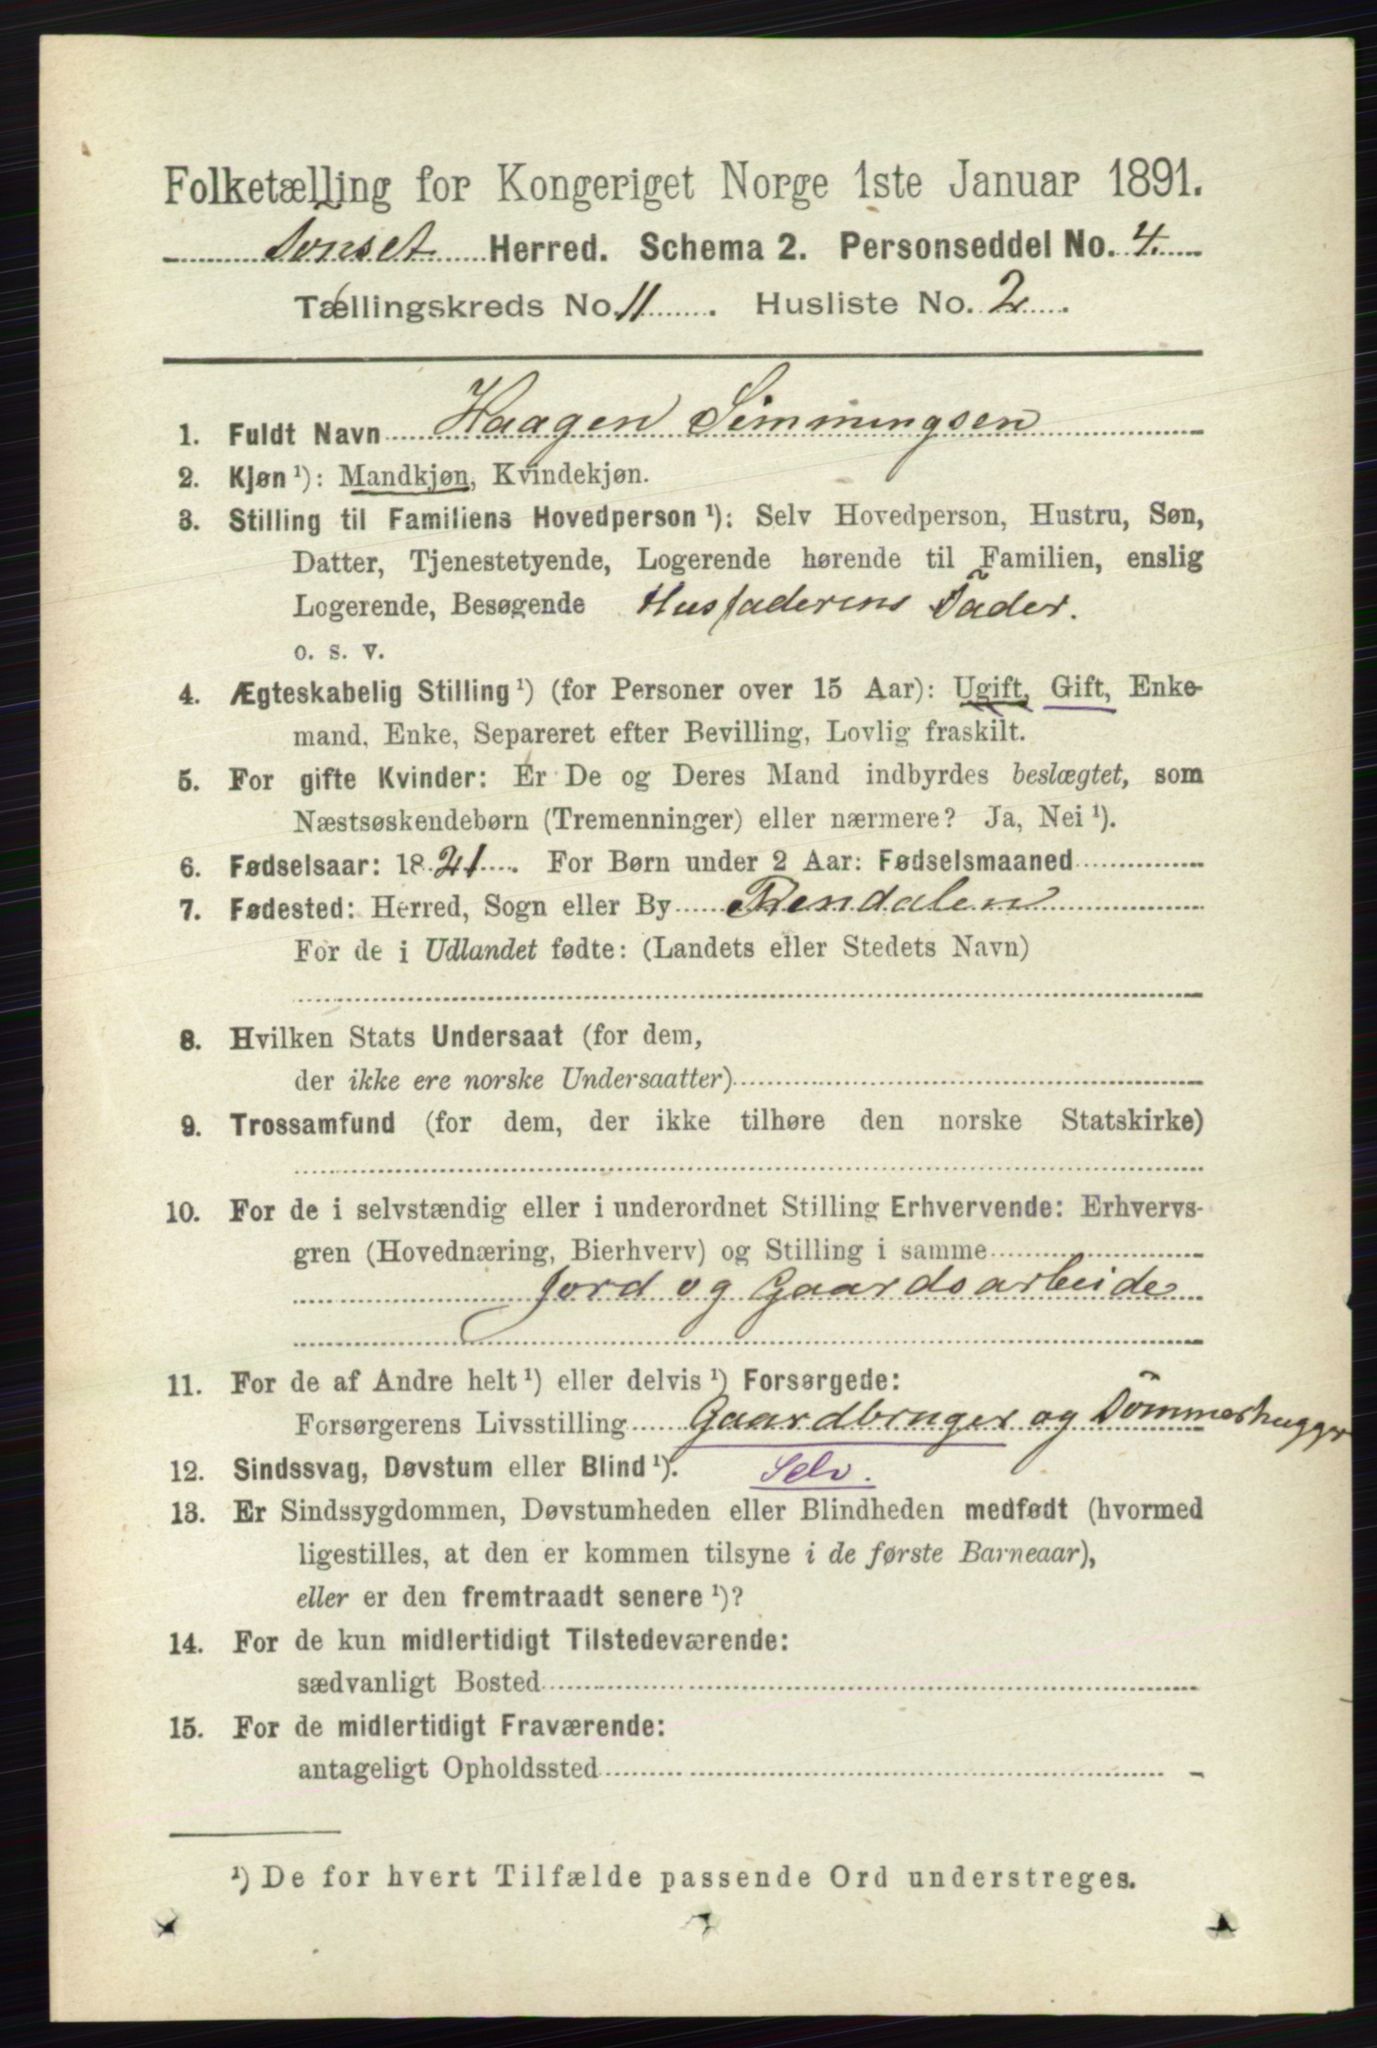 Folketælling for Kongeriget Norge 1ste Januar 1891.
Tönset Herred. Schema 2. Personseddel No. 4.
Tællingskreds No. 11. Husliste No. 2.
1. Fuldt Navn Haagen Simmingsen
2. Kjøn ¹): Mandkjøn, Kvindekjøn.
3. Stilling til Familiens Hovedperson ¹): Selv Hovedperson, Hustru, Søn,
Datter, Tjenestetyende, Logerende hørende til Familien, enslig
Logerende, Besøgende Husfaderens Fader.
o. s. v.
4. Ægteskabelig Stilling ¹) (for Personer over 15 Aar): Ugift, Gift, Enke-
mand, Enke, Separeret efter Bevilling, Lovlig fraskilt.
5. For gifte Kvinder: Er De og Deres Mand indbyrdes beslægtet, som
Næstsøskendebørn (Tremenninger) eller nærmere? Ja, Nei ¹).
6. Fødselsaar: 1821. For Børn under 2 Aar: Fødselsmaaned
7. Fødested: Herred, Sogn eller By Rendalen
For de i Udlandet fødte: (Landets eller Stedets Navn)
8. Hvilken Stats Undersaat (for dem,
der ikke ere norske Undersaatter)
9. Trossamfund (for dem, der ikke tilhøre den norske Statskirke)
10. For de i selvstændig eller i underordnet Stilling Erhvervende: Erhvervs-
gren (Hovednæring, Bierhverv) og Stilling i samme
Jord og Gaardsarbeide
11. For de af Andre helt ¹) eller delvis ¹) Forsørgede:
Forsørgerens Livsstilling Gaardbruger og Tömmerhugger
12. Sindssvag, Døvstum eller Blind ¹). Selv.
13. Er Sindssygdommen, Døvstumheden eller Blindheden medfødt (hvormed
ligestilles, at den er kommen tilsyne i de første Barneaar),
eller er den fremtraadt senere ¹)?
14. For de kun midlertidigt Tilstedeværende:
sædvanligt Bosted
15. For de midlertidigt Fraværende:
antageligt Opholdssted
¹) De for hvert Tilfælde passende Ord understreges.